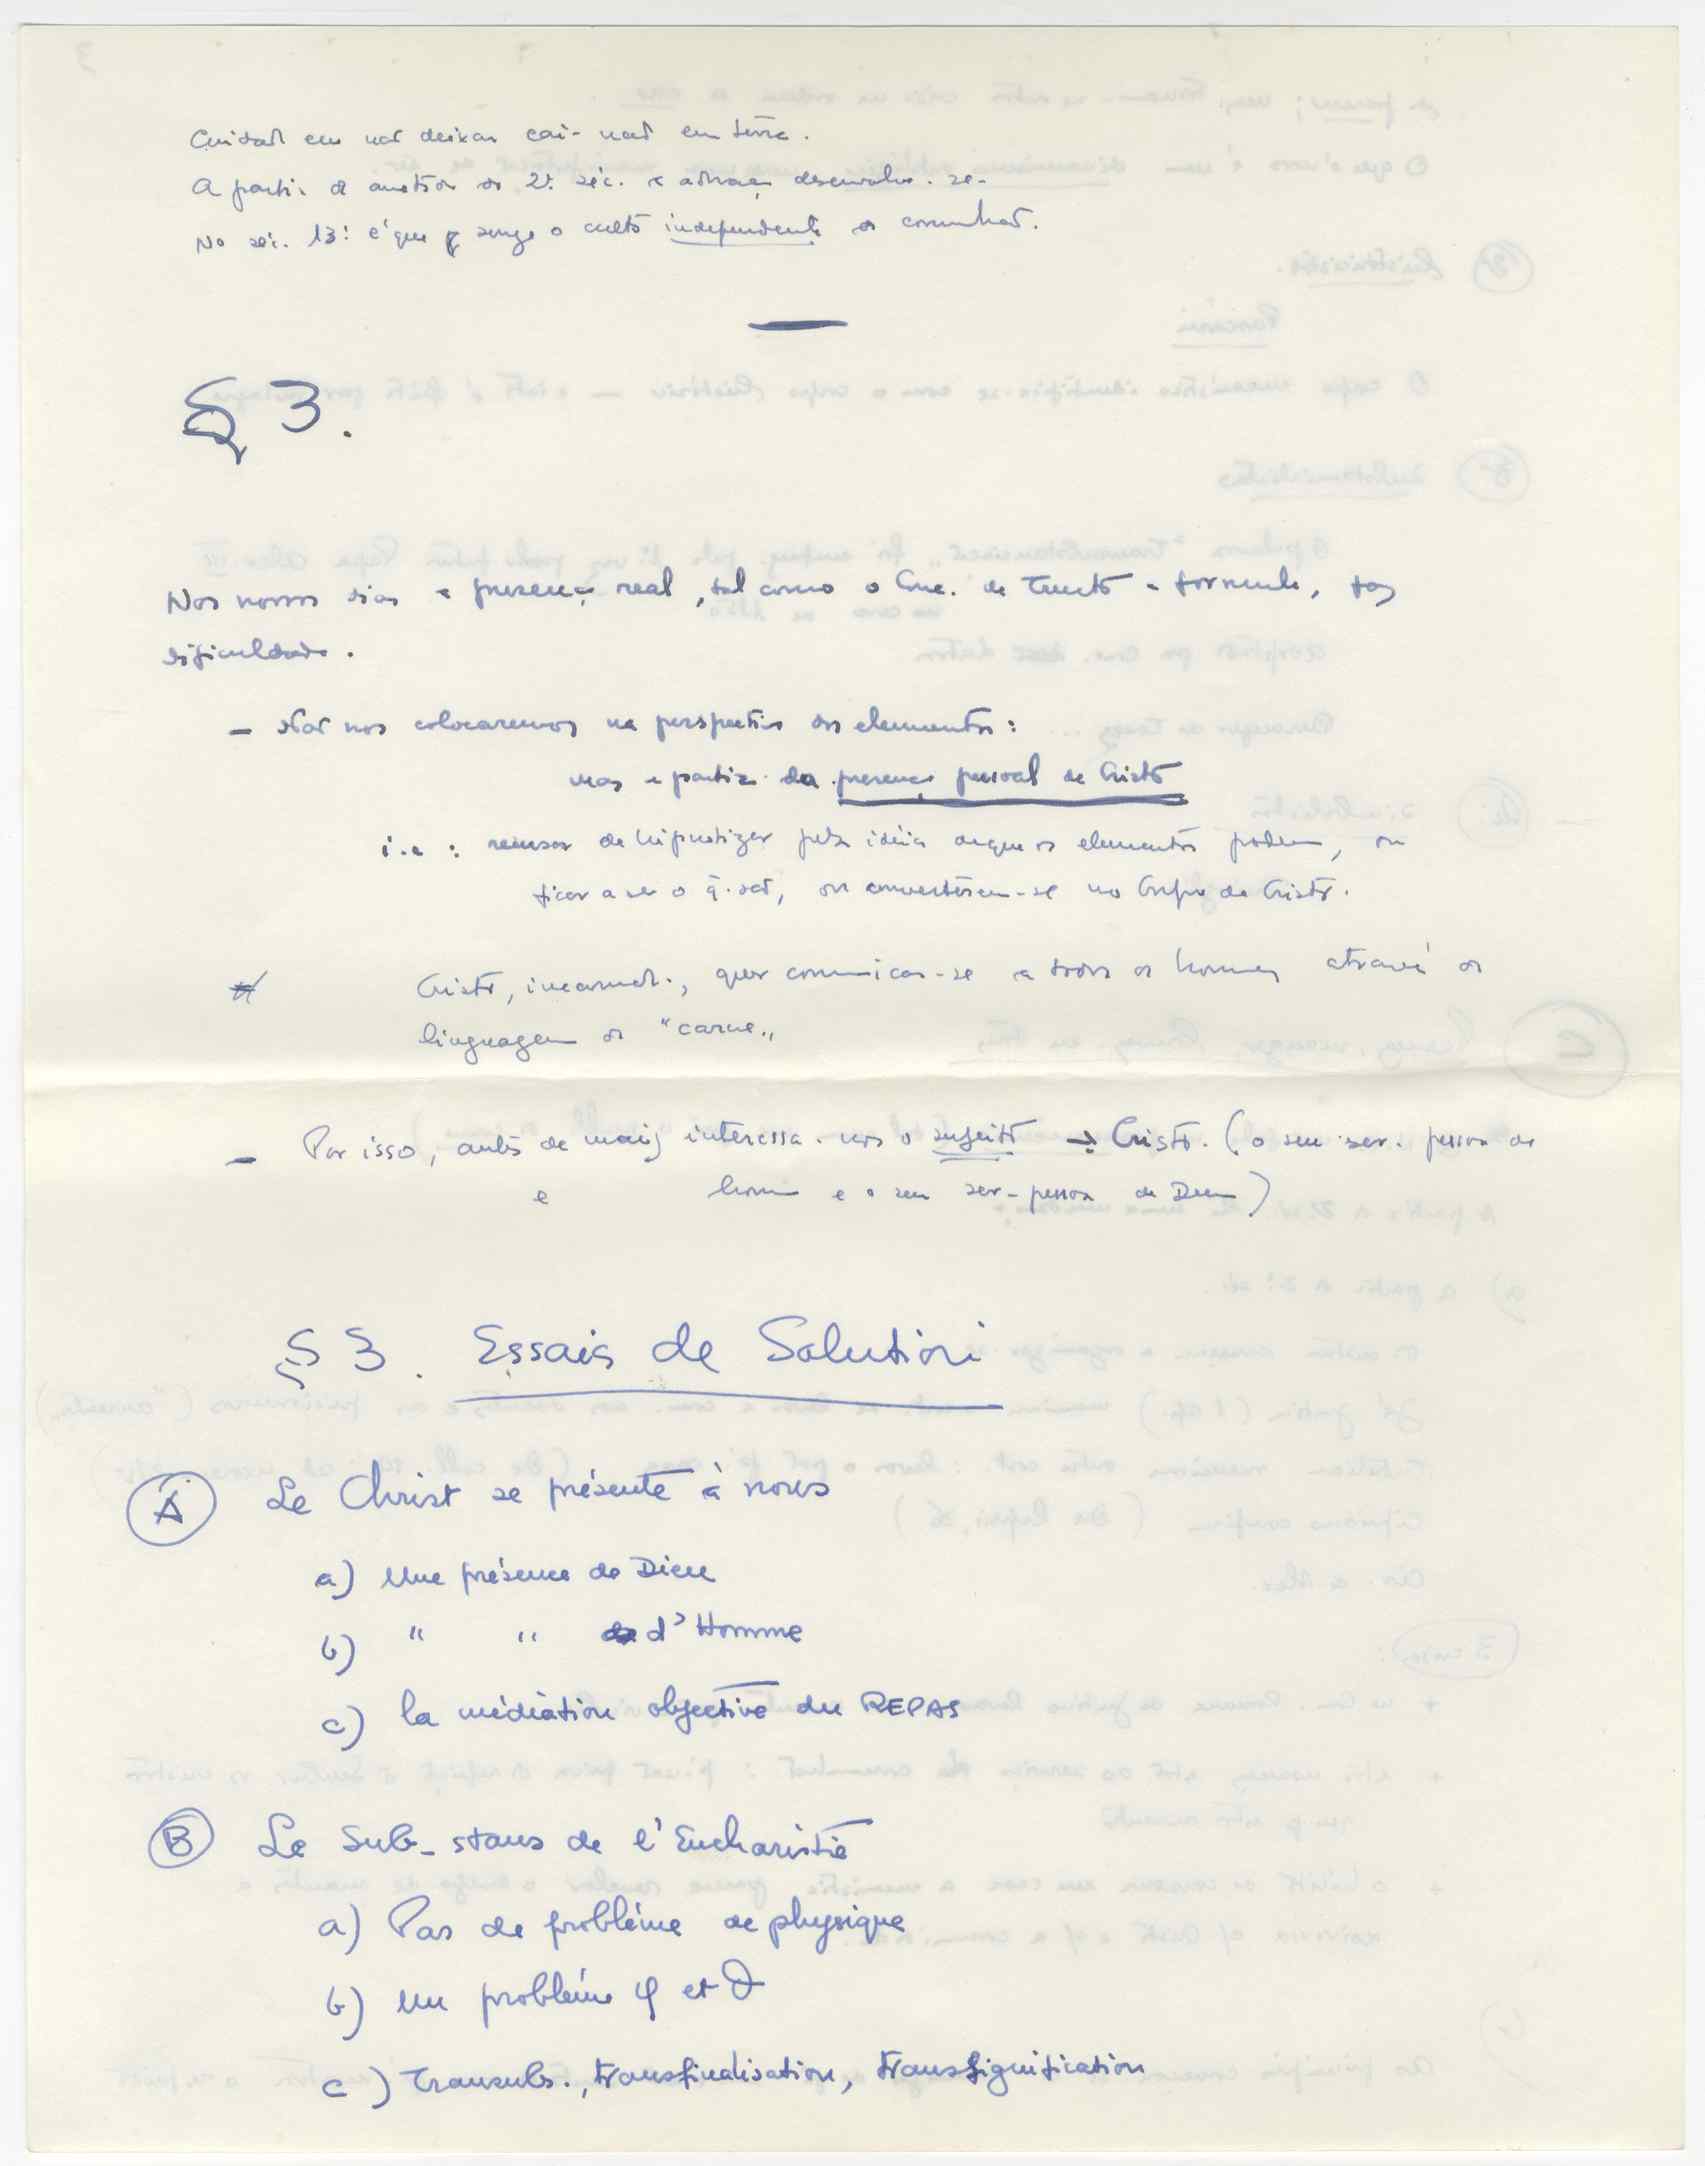 Cuidado em não deixar cair nada em terra.
A partir de meados do 2º séc. a adoração desenvolve-se.
No séc. 13º é que surge o culto independente da comunhão.
§ 3.
Nos nossos dias a presença real, tal como o Conc. de Trento a formula, faz
dificuldade.
- Não nos colocaremos na perspectiva dos elementos:
mas a partir da presença pessoal de Cristo
i.e: recusar de hipnotizar pela ideia de que os elementos podem, ou
ficar a ser o q. são, ou converterem-se no Corpo de Cristo.
Cristo, incarnado, quer comunicar-se a todos os homens através da
linguagem da "carne"
- Por isso, antes de mais interessa-nos o sujeito → Cristo. (o seu ser-pessoa de
e homem e o seu ser-pessoa de Deus)
§ 3. Essais de Solution
A Le Christ se présente à nous
a) Une présence de Dieu
b) " " d'Homme
c) la médiation objective du REPAS
B Le Sub-stans de l'Eucharistie
a) Pas de problème de physique
b) Un problème φ et θ
c) Transubs., transfinalisation, transsignification